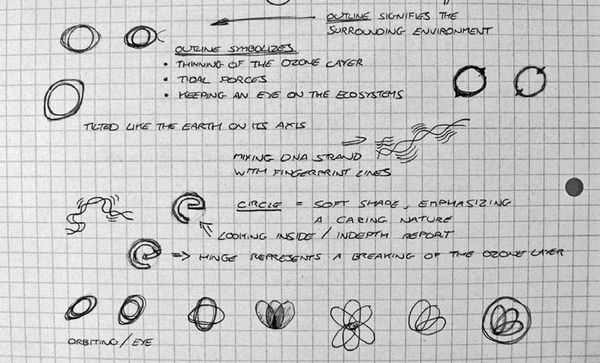 OUTLINE SIGNIFIES THE
SURROUNDING ENVIRONMENT
OUTLINE SYMBOLIZES
• THINNING OF THE OZONE LAYER
• TIDAL FORCES
• KEEPING AN EYE ON THE ECOSYSTEMS
TILTED LIKE THE EARTH ON ITS AXIS
MIXING DNA STRAND
WITH FINGERPRINT LINES
CIRCLE = SOFT SHAPE, EMPHASIZING
A CARING NATURE
LOOKING INSIDE / INDEPTH REPORT
HINGE REPRESENTS A BREAKING OF THE OZONE LAYER
ORBITING / EYE